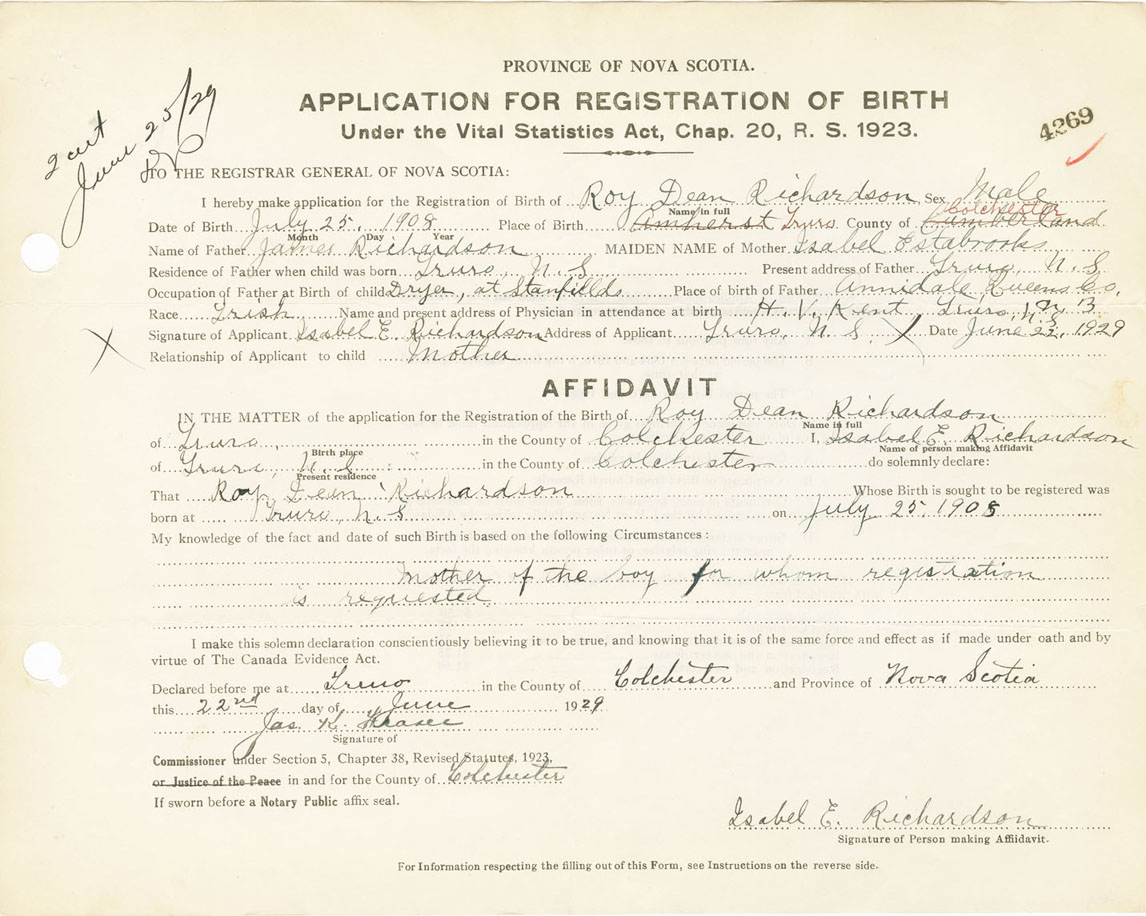 PROVINCE OF NOVA SCOTIA.
APPLICATION FOR REGISTRATION OF BIRTH
Under the Vital Statistics Act, Chap. 20, R. S. 1923.
4269
2 cert
June 25/29
TO THE REGISTRAR GENERAL OF NOVA SCOTIA:
I hereby make application for the Registration of Birth of Roy Dean Richardson Sex Male
Name in full
Colchester
Date of Birth July 25, 1908 Place of Birth Amherst Truro County of Cumberland
Month Day Year
Name of Father James Richardson MAIDEN NAME of Mother Isabel Estabrooks
Residence of Father when child was born Truro, N. S. Present address of Father Truro, N. S.
Occupation of Father at Birth of child Dryer, at Stanfields Place of birth of Father Annidale Queens Co.
N. B.
Race Irish Name and present address of Physician in attendance at birth H. V. Kent, Truro, N. S.
Signature of Applicant Isabel E. Richardson Address of Applicant Truro, N. S. Date June 22, 1929
Relationship of Applicant to child Mother
AFFIDAVIT
IN THE MATTER of the application for the Registration of the Birth of Roy Dean Richardson
Name in full
of Truro, in the County of Colchester I, Isabel E. Richardson
Birth place Name of person making Affidavit
of Truro, N. S. in the County of Colchester do solemnly declare:
Present residence
That Roy Dean Richardson Whose Birth is sought to be registered was
born at Truro, N. S on July 25 1908
My knowledge of the fact and date of such Birth is based on the following Circumstances:
Mother of the boy for whom registration
is requested.
I make this solemn declaration conscientiously believing it to be true, and knowing that it is of the same force and effect as if made under oath and by
virtue of The Canada Evidence Act.
Declared before me at Truro in the County of Colchester and Province of Nova Scotia
this 22nd day of June 1929
Jas. K. Fraser
Signature of
Commissioner under Section 5, Chapter 38, Revised Statutes, 1923,
or Justice of the Peace in and for the County of Colchester
If sworn before a Notary Public affix seal.
Isabel E. Richardson
Signature of Person making Affidavit.
For Information respecting the filling out of this Form, see Instructions on the reverse side.